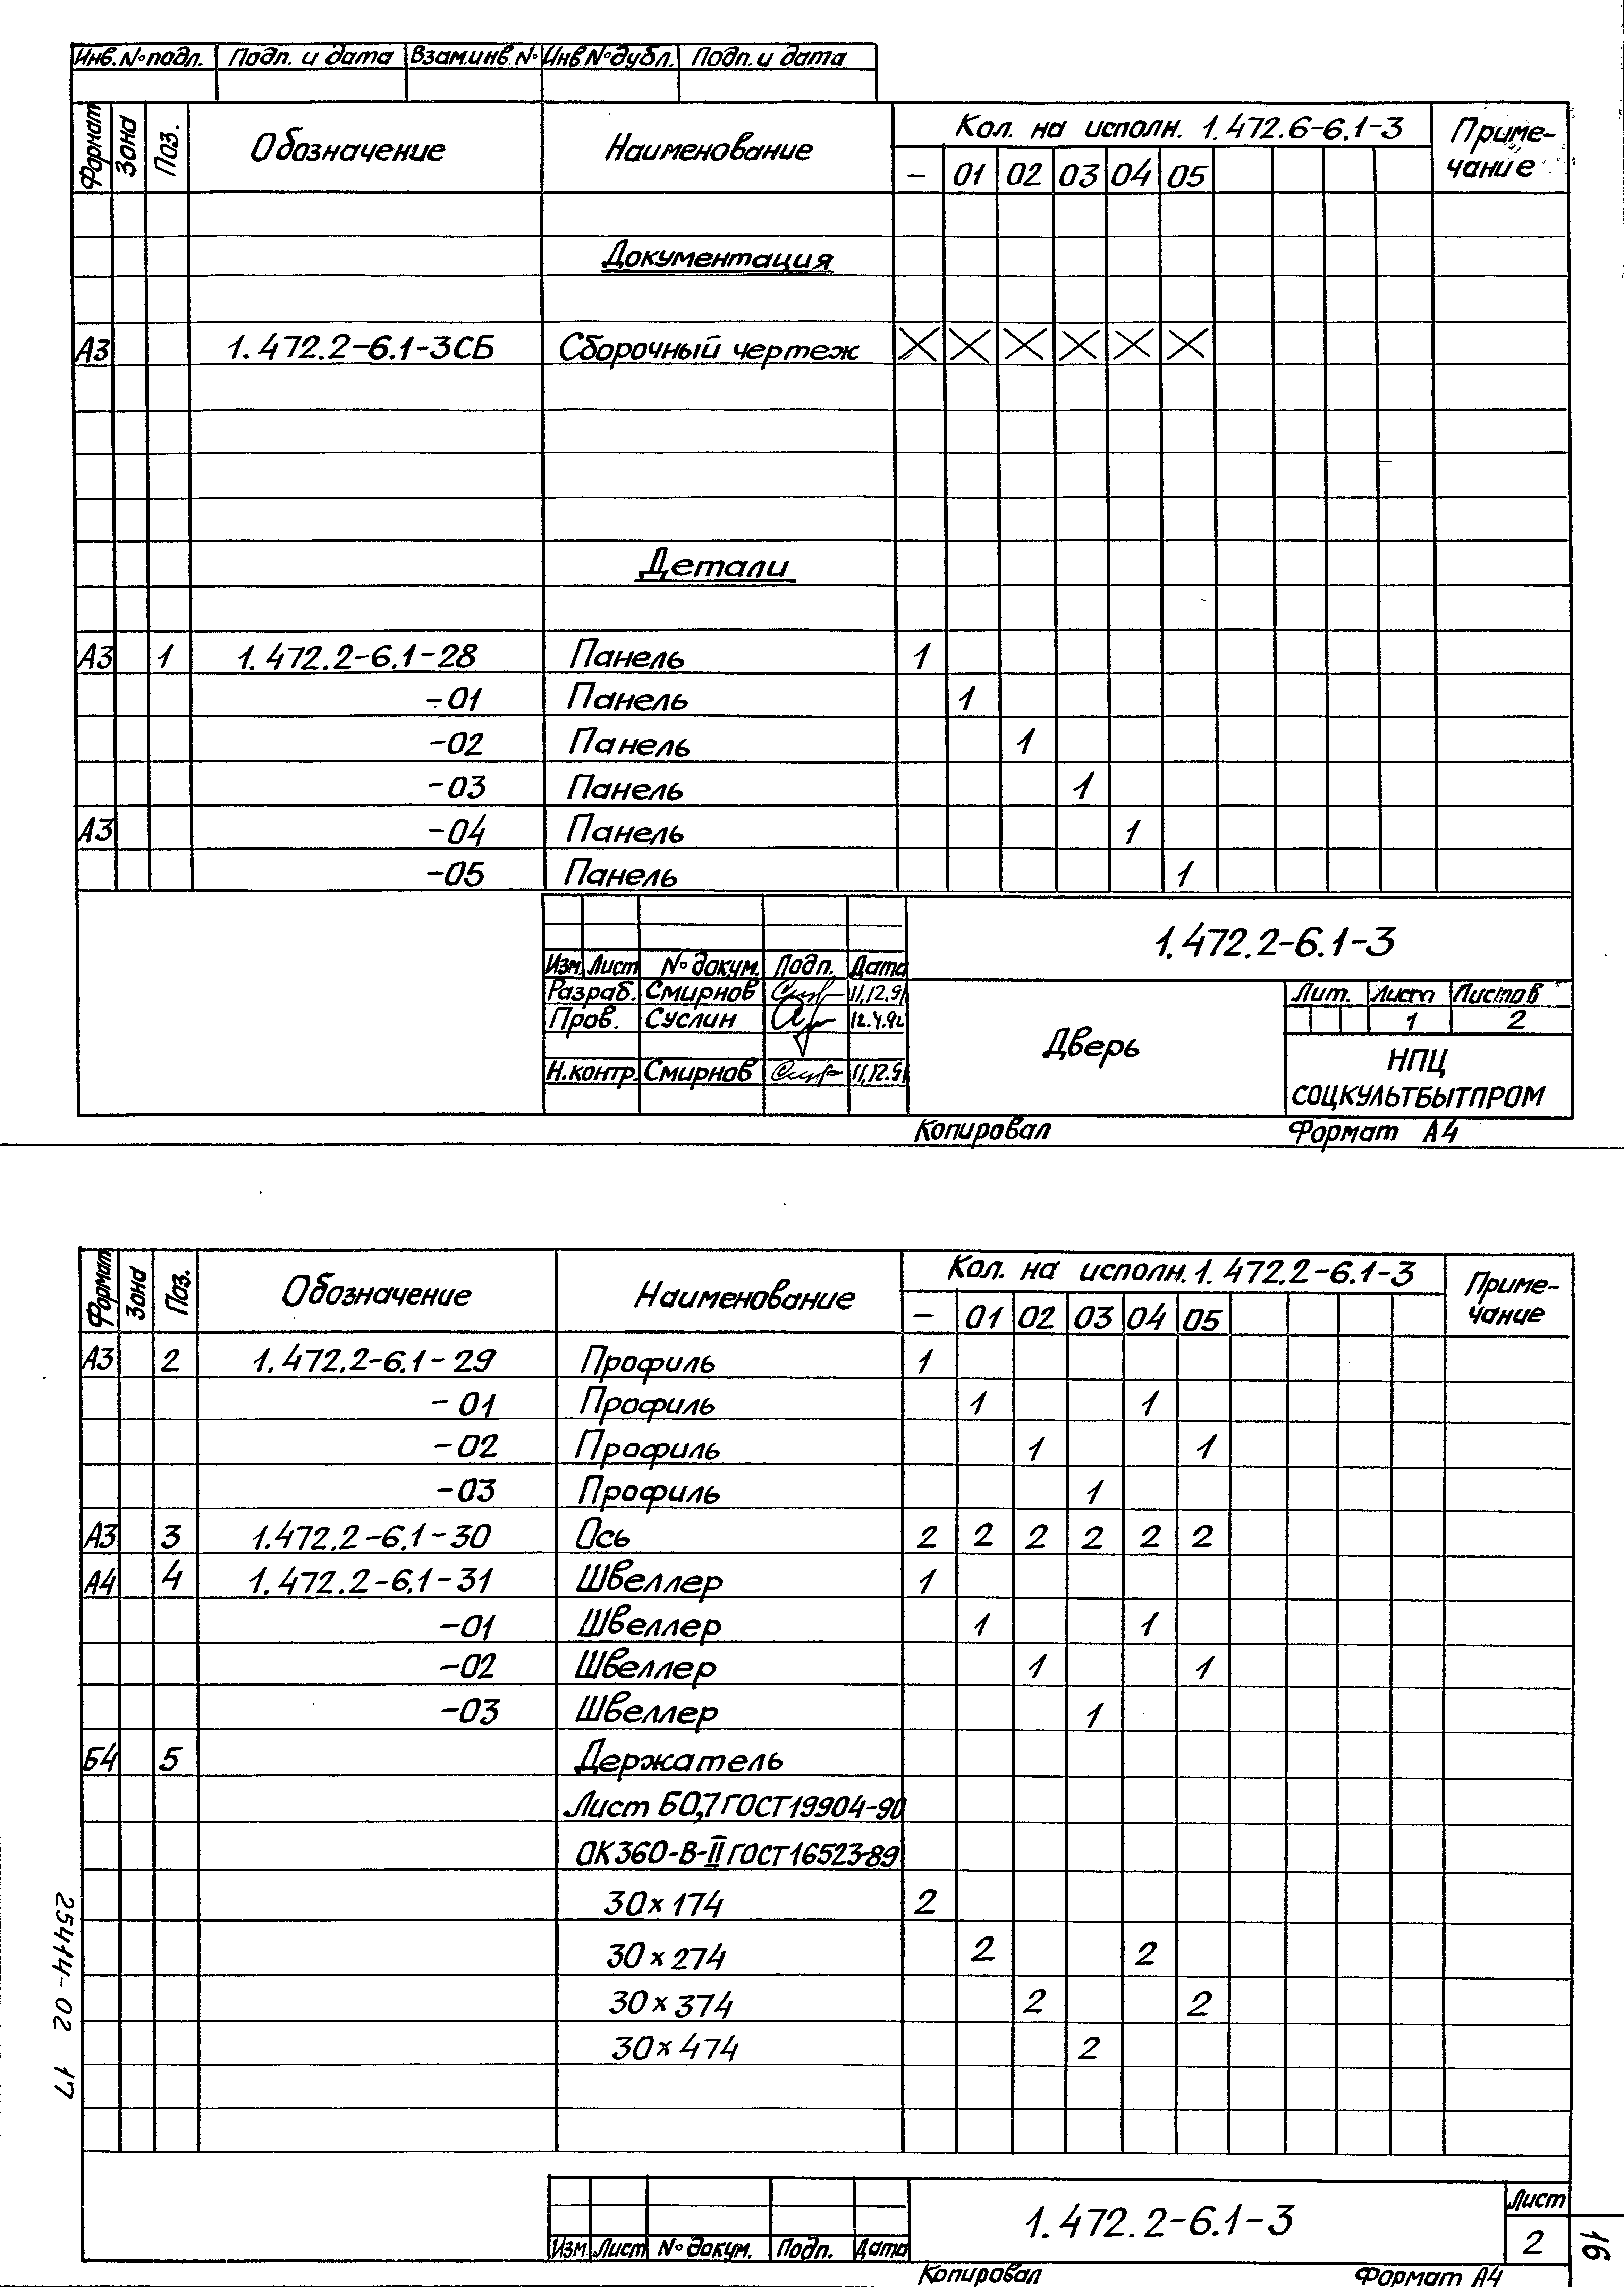 Инв.№подл. Подп. и дата Взам.инв.№ Инв.№дубл. Подп. и дата
Формат Зона Поз. Обозначение Наименование Кол. на исполн. 1.472.6-6.1-3 Приме-
чание
- 01 02 03 04 05
Документация
А3 1.472.2-6.1-3СБ Сборочный чертеж X X X X X X
Детали
А3 1 1.472.2-6.1-28 Панель 1
-01 Панель 1
-02 Панель 1
-03 Панель 1
А3 -04 Панель 1
-05 Панель 1
1.472.2-6.1-3
Изм. Лист № докум. Подп. Дата
Разраб. Смирнов 11.12.91
Пров. Суслин 12.4.92
Н.контр. Смирнов 11.12.91
Дверь
Лит. Лист Листов
1 2
НПЦ
СОЦКУЛЬТБЫТПРОМ
Копировал Формат А4
Формат Зона Поз. Обозначение Наименование Кол. на исполн. 1.472.2-6.1-3 Приме-
чание
- 01 02 03 04 05
А3 2 1.472.2-6.1-29 Профиль 1
-01 Профиль 1 1
-02 Профиль 1 1
-03 Профиль 1
А3 3 1.472.2-6.1-30 Ось 2 2 2 2 2 2
А4 4 1.472.2-6.1-31 Швеллер 1
-01 Швеллер 1 1
-02 Швеллер 1 1
-03 Швеллер 1
Б4 5 Держатель
Лист Б0,7 ГОСТ 19904-90
ОК360-В-II ГОСТ 16523-89
30×174 2
30×274 2 2
30×374 2 2
30×474 2
25414-02 17
1.472.2-6.1-3
Лист
2
Изм. Лист № докум. Подп. Дата
Копировал Формат А4
16